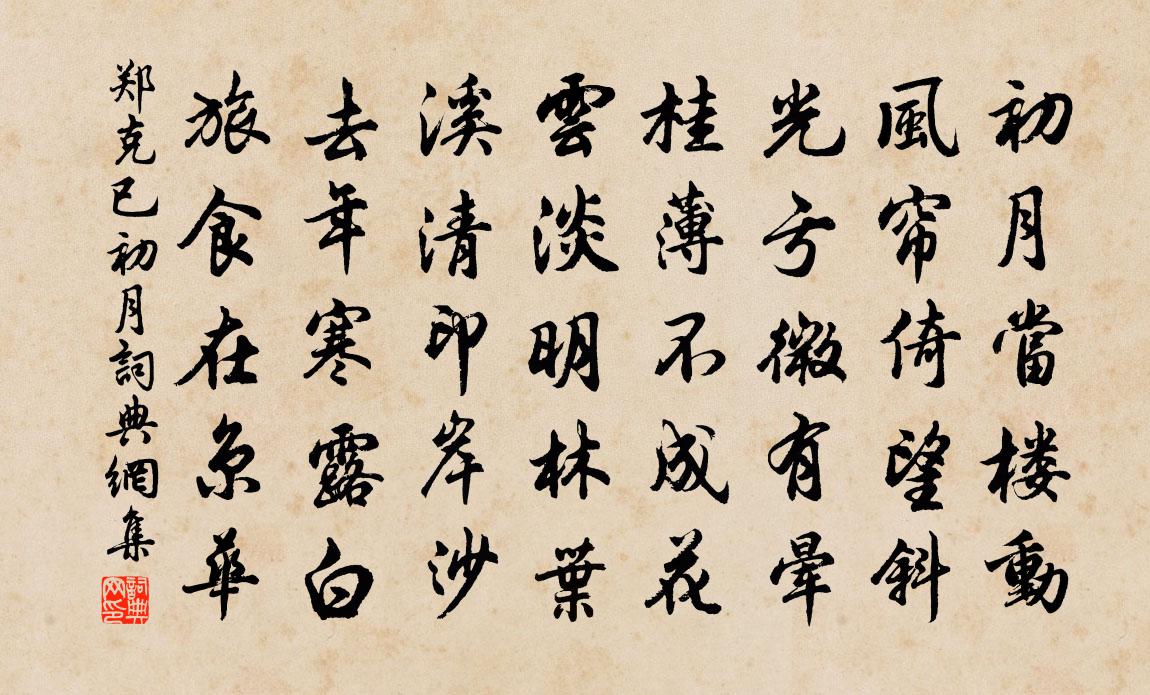 初月當楼動
風帘倚望斜
光亏微有暈
桂薄不成花
雲淡明林葉
溪清印岸沙
去年寒露白
旅食在京華
郑克己初月詞典網集
詞典网印